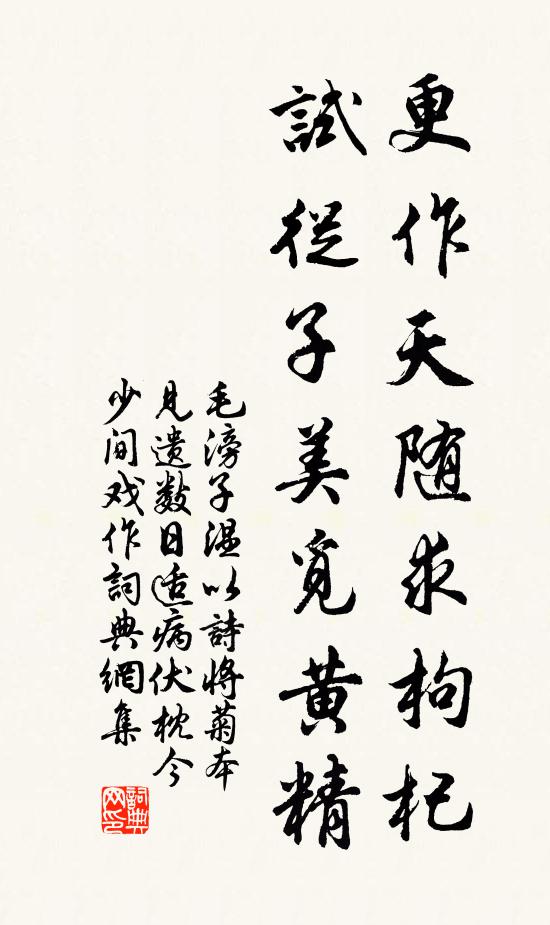 更作天随求枸杞
試從子美覓黄精
毛滂子温以詩將菊本
見遗数日适病伏枕今
少间戏作詞典網集
詞典網印